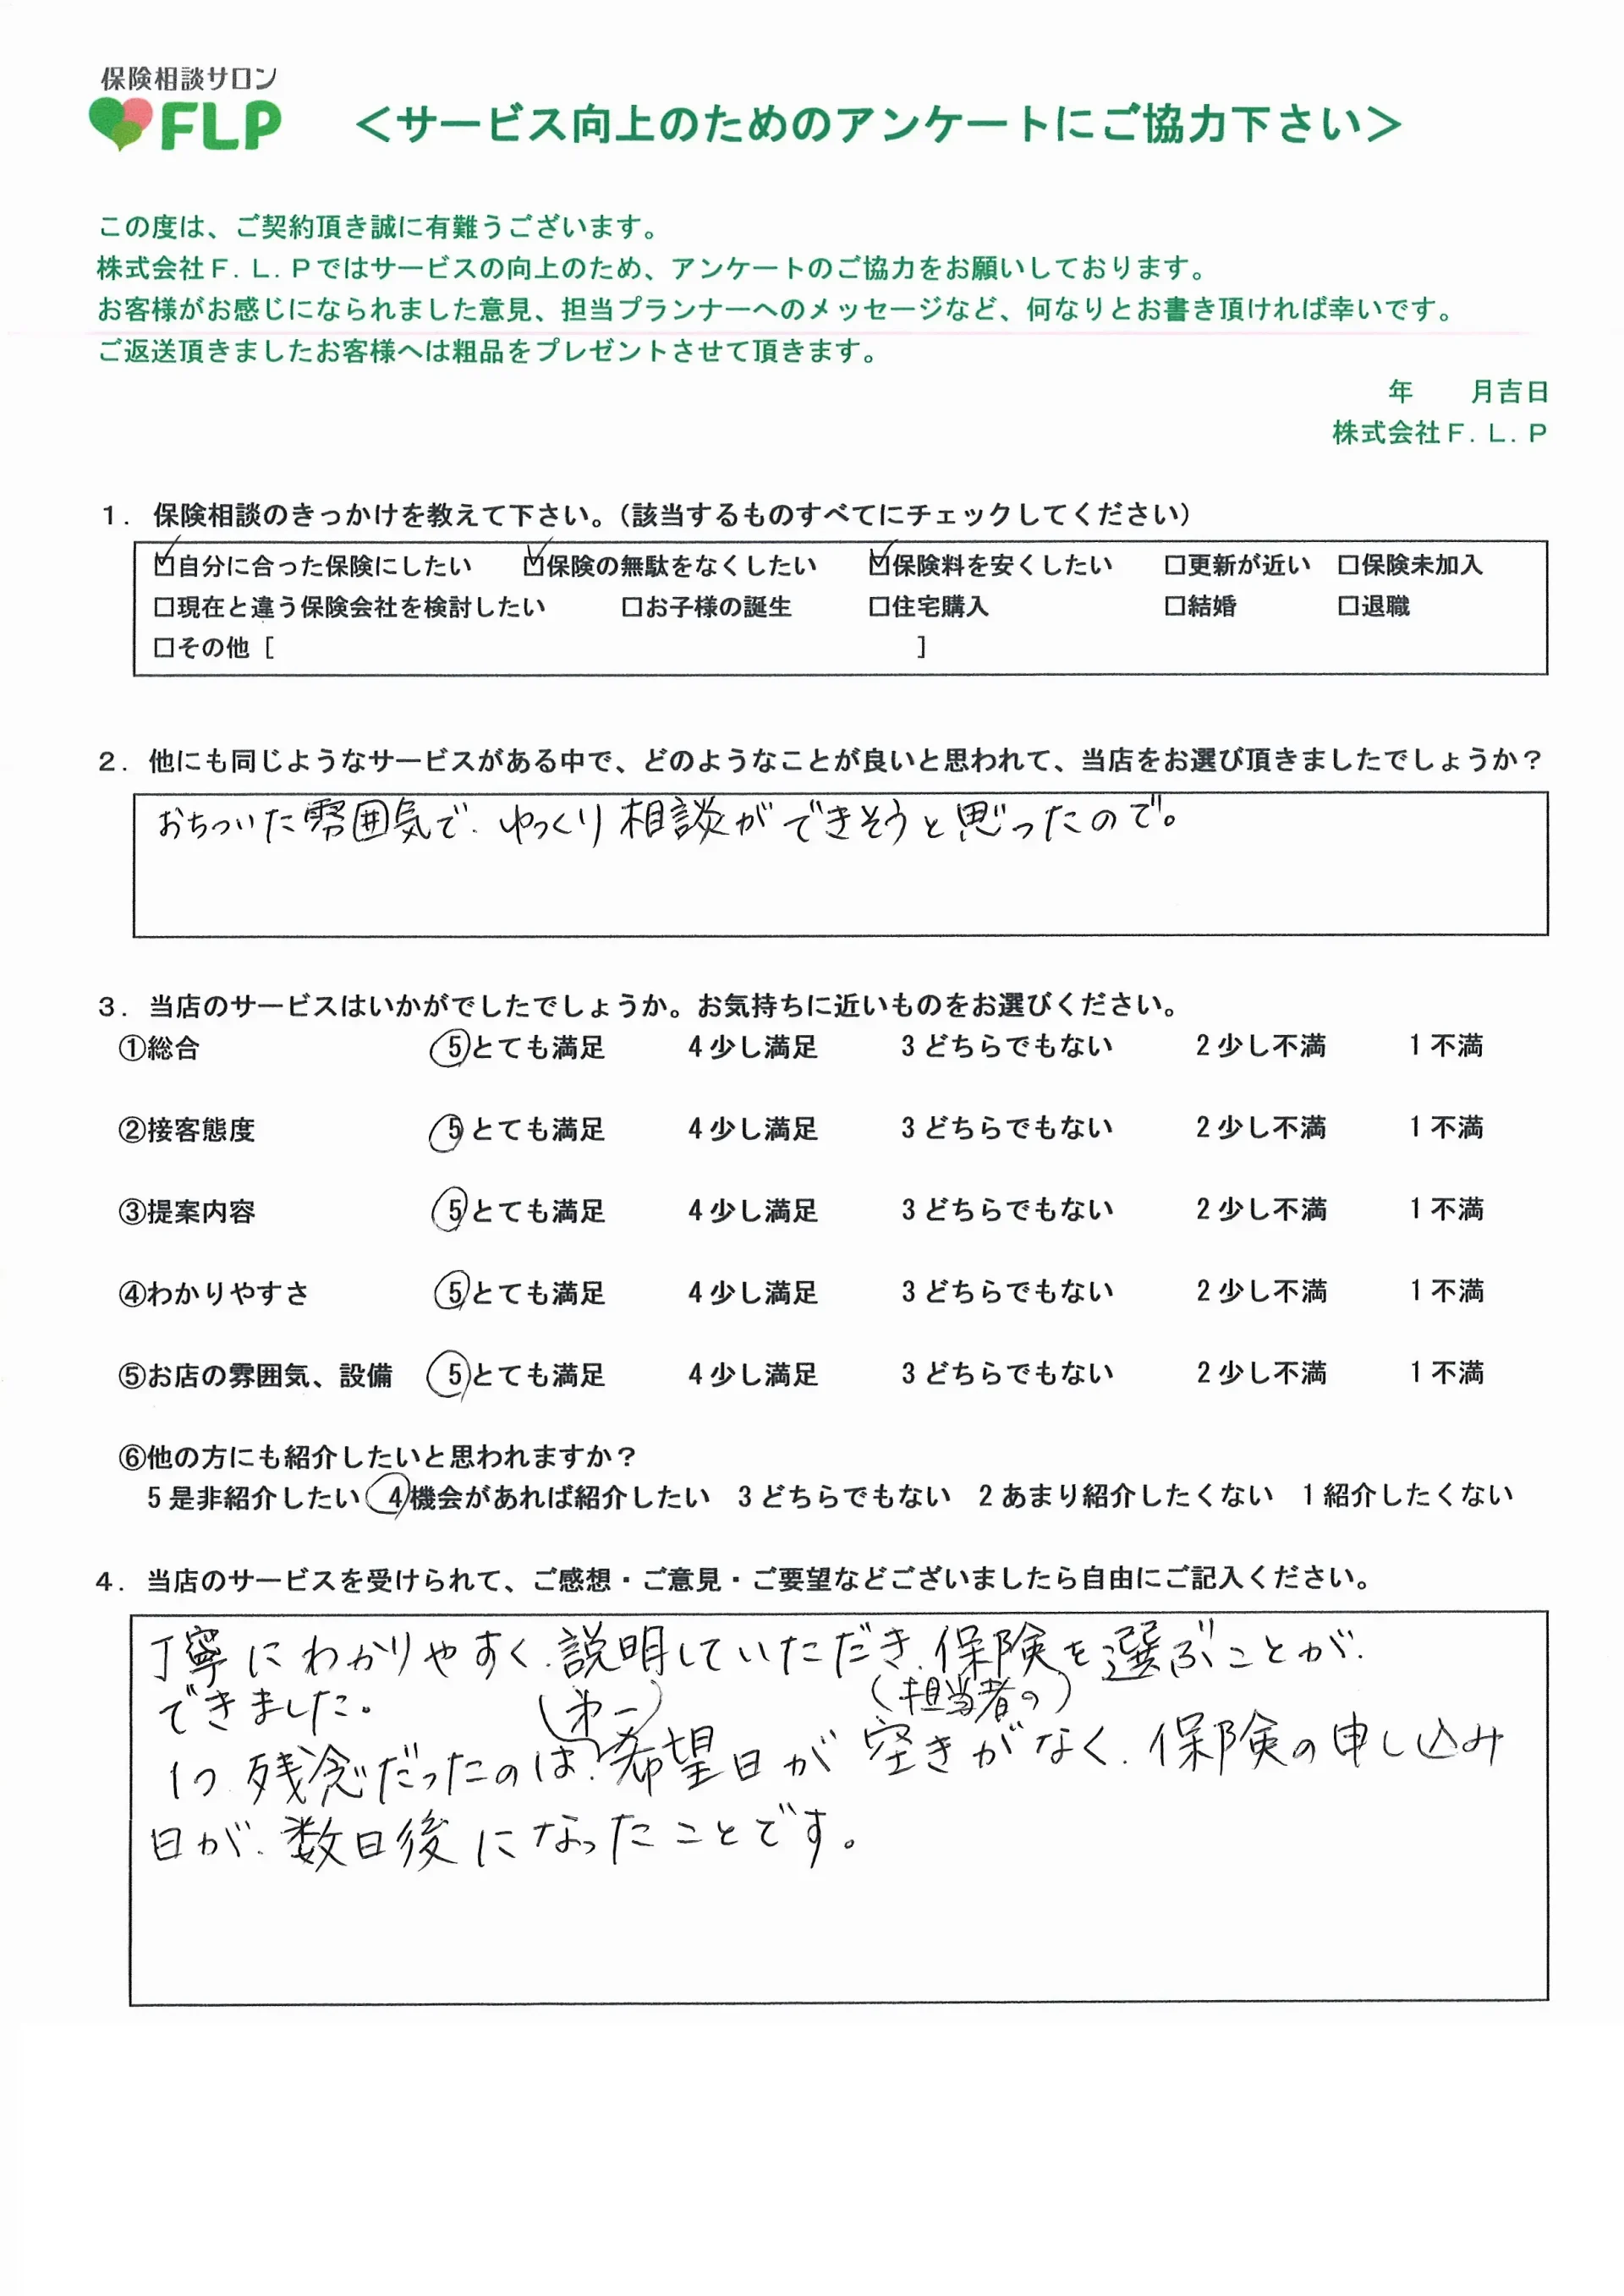 保険相談サロン
FLP
＜サービス向上のためのアンケートにご協力下さい＞
この度は、ご契約頂き誠に有難うございます。
株式会社Ｆ.Ｌ.Ｐではサービスの向上のため、アンケートのご協力をお願いしております。
お客様がお感じになられました意見、担当プランナーへのメッセージなど、何なりとお書き頂ければ幸いです。
ご返送頂きましたお客様へは粗品をプレゼントさせて頂きます。
年　　月吉日
株式会社Ｆ.Ｌ.Ｐ
１．保険相談のきっかけを教えて下さい。（該当するものすべてにチェックしてください）
☑自分に合った保険にしたい　☑保険の無駄をなくしたい　☑保険料を安くしたい　□更新が近い　□保険未加入
□現在と違う保険会社を検討したい　□お子様の誕生　□住宅購入　□結婚　□退職
□その他［　　　　　］
２．他にも同じようなサービスがある中で、どのようなことが良いと思われて、当店をお選び頂きましたでしょうか？
おちついた雰囲気で、ゆっくり相談ができそうと思ったので。
３．当店のサービスはいかがでしたでしょうか。お気持ちに近いものをお選びください。
①総合　5とても満足　4少し満足　3どちらでもない　2少し不満　1不満
②接客態度　5とても満足　4少し満足　3どちらでもない　2少し不満　1不満
③提案内容　5とても満足　4少し満足　3どちらでもない　2少し不満　1不満
④わかりやすさ　5とても満足　4少し満足　3どちらでもない　2少し不満　1不満
⑤お店の雰囲気、設備　5とても満足　4少し満足　3どちらでもない　2少し不満　1不満
⑥他の方にも紹介したいと思われますか？
5是非紹介したい　4機会があれば紹介したい　3どちらでもない　2あまり紹介したくない　1紹介したくない
４．当店のサービスを受けられて、ご感想・ご意見・ご要望などございましたら自由にご記入ください。
丁寧にわかりやすく、説明していただき、保険を選ぶことが、
できました。
（第一）　（担当者の）
1つ、残念だったのは、希望日が空きがなく、保険の申し込み
日が、数日後になったことです。